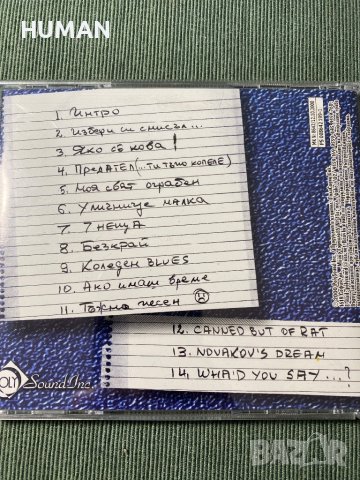 HUMAN
1. Интро
2. Избери си смисъл...
3. Яко съ кова!
4. Предател (...ти тъпо копеле)
5. Моя свят ограбен
6. Уличнице малка
7. 7 неща
8. Безкрай
9. Коледен BLUES
10. Ако имаш време
11. Тъжна песен
12. CANNED BUT OF RAT
13. NOVAKOV'S DREAM
14. WHA'D YOU SAY...?
Sound Inc.
BAZAR